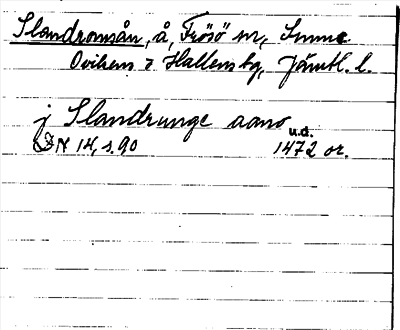 Slandromsån, å, Frösö sn, Sunne
Ovikens o Hallens tg, Jämtl. l.
j Slandrunge aano u.d.
N 14, s. 90 1472 or.